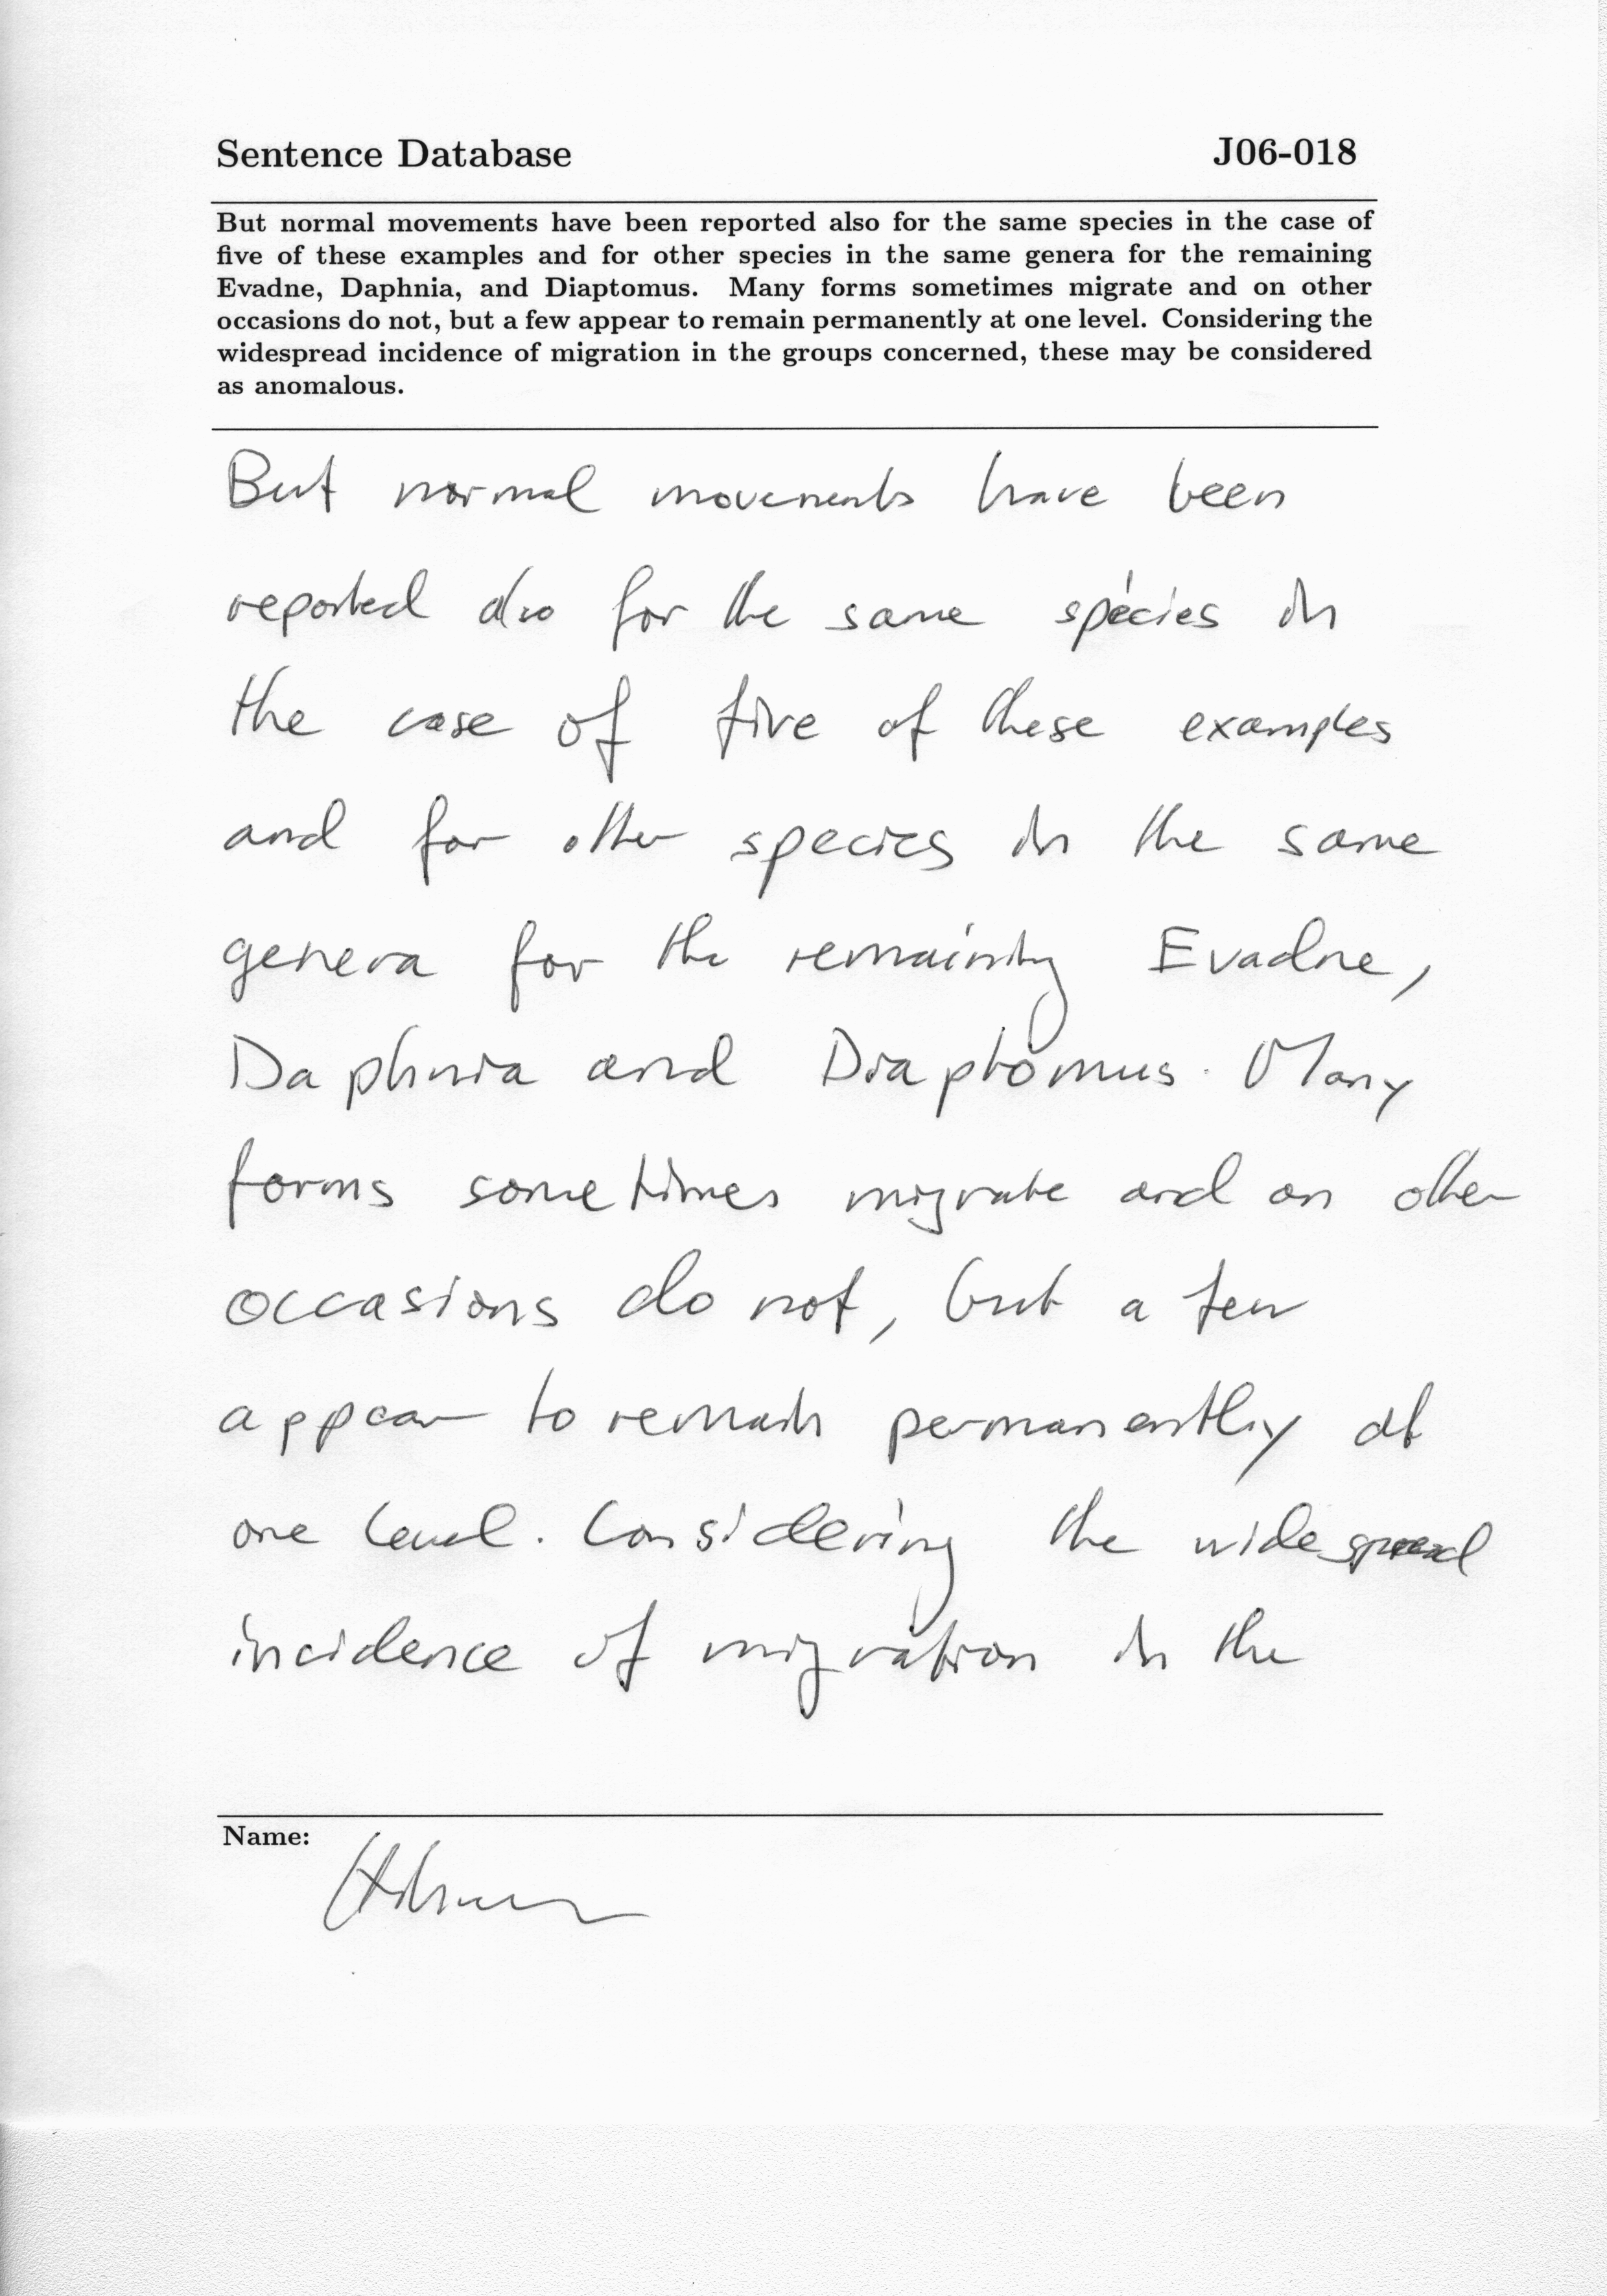 Sentence Database J06-018
But normal movements have been reported also for the same species in the case of
five of these examples and for other species in the same genera for the remaining
Evadne, Daphnia, and Diaptomus. Many forms sometimes migrate and on other
occasions do not, but a few appear to remain permanently at one level. Considering the
widespread incidence of migration in the groups concerned, these may be considered
as anomalous.
But normal movements have been
reported also for the same species in
the case of five of these examples
and for other species in the same
genera for the remaining Evadne,
Daphnia and Diaptomus. Many
forms sometimes migrate and on other
occasions do not, but a few
appear to remain permanently at
one level. Considering the widespread
incidence of migration in the
Name: